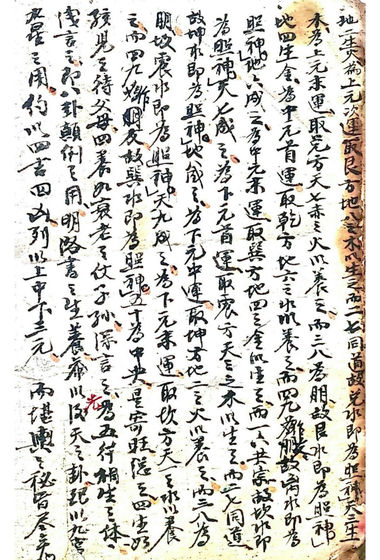 地二生火為上元次運取艮方地八之木以生之而二七同道故兌水即為照神天三生
木為上元末運取兌方天七赤之火以養之而三八為朋故艮水即為照神」
地四生金為中元首運取乾方地六之水以養之而四九朋故离水即為
照神地六成之為中元末運取巽方地四之金以生之而一六共宗故坎水即
為照神天七成之為下元首運取震方天三之木以生之而二七同道
故坤水即為照神地八成之為下元中運取坤方地二之火以養之而三八為
朋故震水即為照神」天九成之為下元末運取坎方天一之水以養
之而四九作朋友故巽水即為照神五十為中央是寄旺之四生如
孩兒之待父母四養如衰老之仗子孫深言之為五行相生之体
淺言之即八卦顛倒之用明洛書之生養以後天之卦配以九宮
九星之用約以四吉四凶列以上中下三元 而堪輿之秘旨尽矣